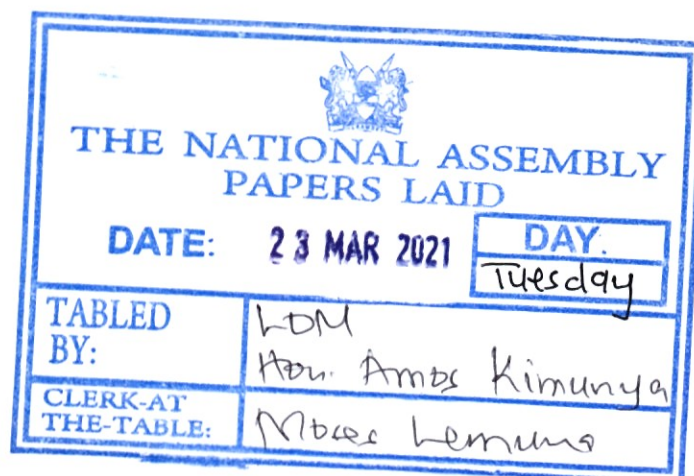 THE NATIONAL ASSEMBLY
PAPERS LAID
DATE: 23 MAR 2021
DAY.
Tuesday
TABLED
BY:
LOM
Hon. Amos Kimunya
CLERK-AT
THE-TABLE:
Moses Lemuna